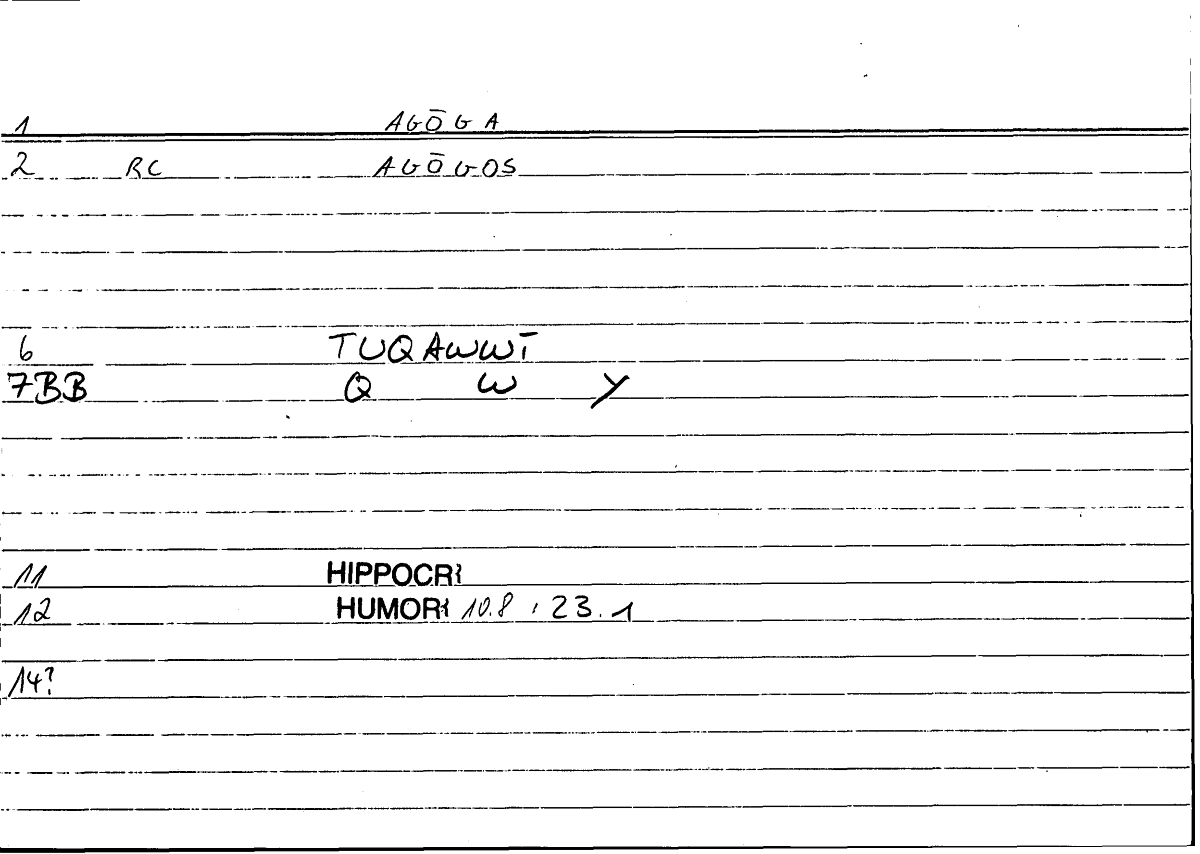 1 AGŌGA
2 RC AGŌGOS
6 TUQAWWĪ
7BB Q W Y
11 HIPPOCR}
12 HUMOR} 10.8 , 23.1
14?